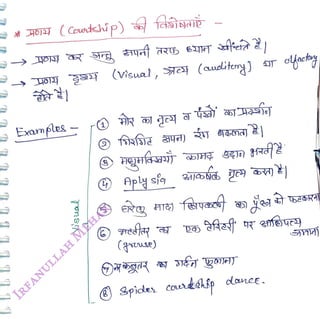 * प्रणय (Courdship) की विशेषताएँ -
→ प्रणय कर जन्तु अपनी तरफ ध्यान खींचते है।
→ प्रणय दृश्य (Visual, श्रव्य (auditory) या olfactory
होते है।
Examples -
Visual
① मोर का नृत्य व पंखों का प्रदर्शन
② गिरगिट अपना रंग बदलता है।
③ मधुमक्खियाँ कामद उड़ान भरती है
④ Aplysia आकर्षक नृत्य करता है।
⑤ घरेलु मादा छिपकली का पूँछ को फटकारना
⑥ का एक टेरिटरी पर आधिपत्य
(grouse) जमाना
⑦ कबूतर का गर्दन फुलाना
⑧ Spider courdship dance.
IRFANULLAH MEHAR